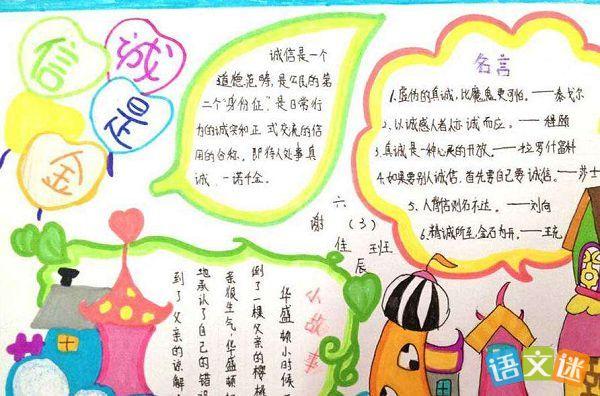 诚信是金
诚信是一个
道德范畴,是公民的第
二个“身份证”,是日常行
为的诚实和正式交流的信
用的合称。即待人处事真
诚、一诺千金。
名言
1、虚伪的真诚,比魔鬼更可怕。——泰戈尔
2、以诚感人者,人亦诚而应。——程颐
3、真诚是一种心灵的开放。——拉罗什富科
4、如果要别人诚信,首先要自己要诚信。——莎士
5、人背信则名不达。——刘向
6、精诚所至,金石为开。——王充
六(3)班
谢佳辰
小故事
华盛顿小时候
倒了一棵父亲的樱桃
亲很生气,华盛顿
地承认了自己的错误
到了父亲的谅解
语文迷